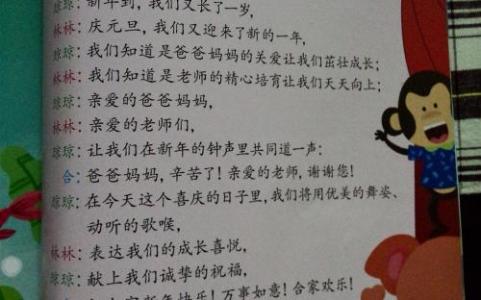 琼琼：新年到，我们又长了一岁，
林林：庆元旦，我们又迎来了新的一年，
琼琼：我们知道是爸爸妈妈的关爱让我们茁壮成长；
林林：我们知道是老师的精心培育让我们天天向上；
琼琼：亲爱的爸爸妈妈，
林林：亲爱的老师们，
琼琼：让我们在新年的钟声里共同道一声：
合：爸爸妈妈，辛苦了！亲爱的老师，谢谢您！
琼琼：在今天这个喜庆的日子里，我们将用优美的舞姿、
动听的歌喉，
林林：表达我们的成长喜悦，
琼琼：献上我们诚挚的祝福，
新年快乐！万事如意！合家欢乐！